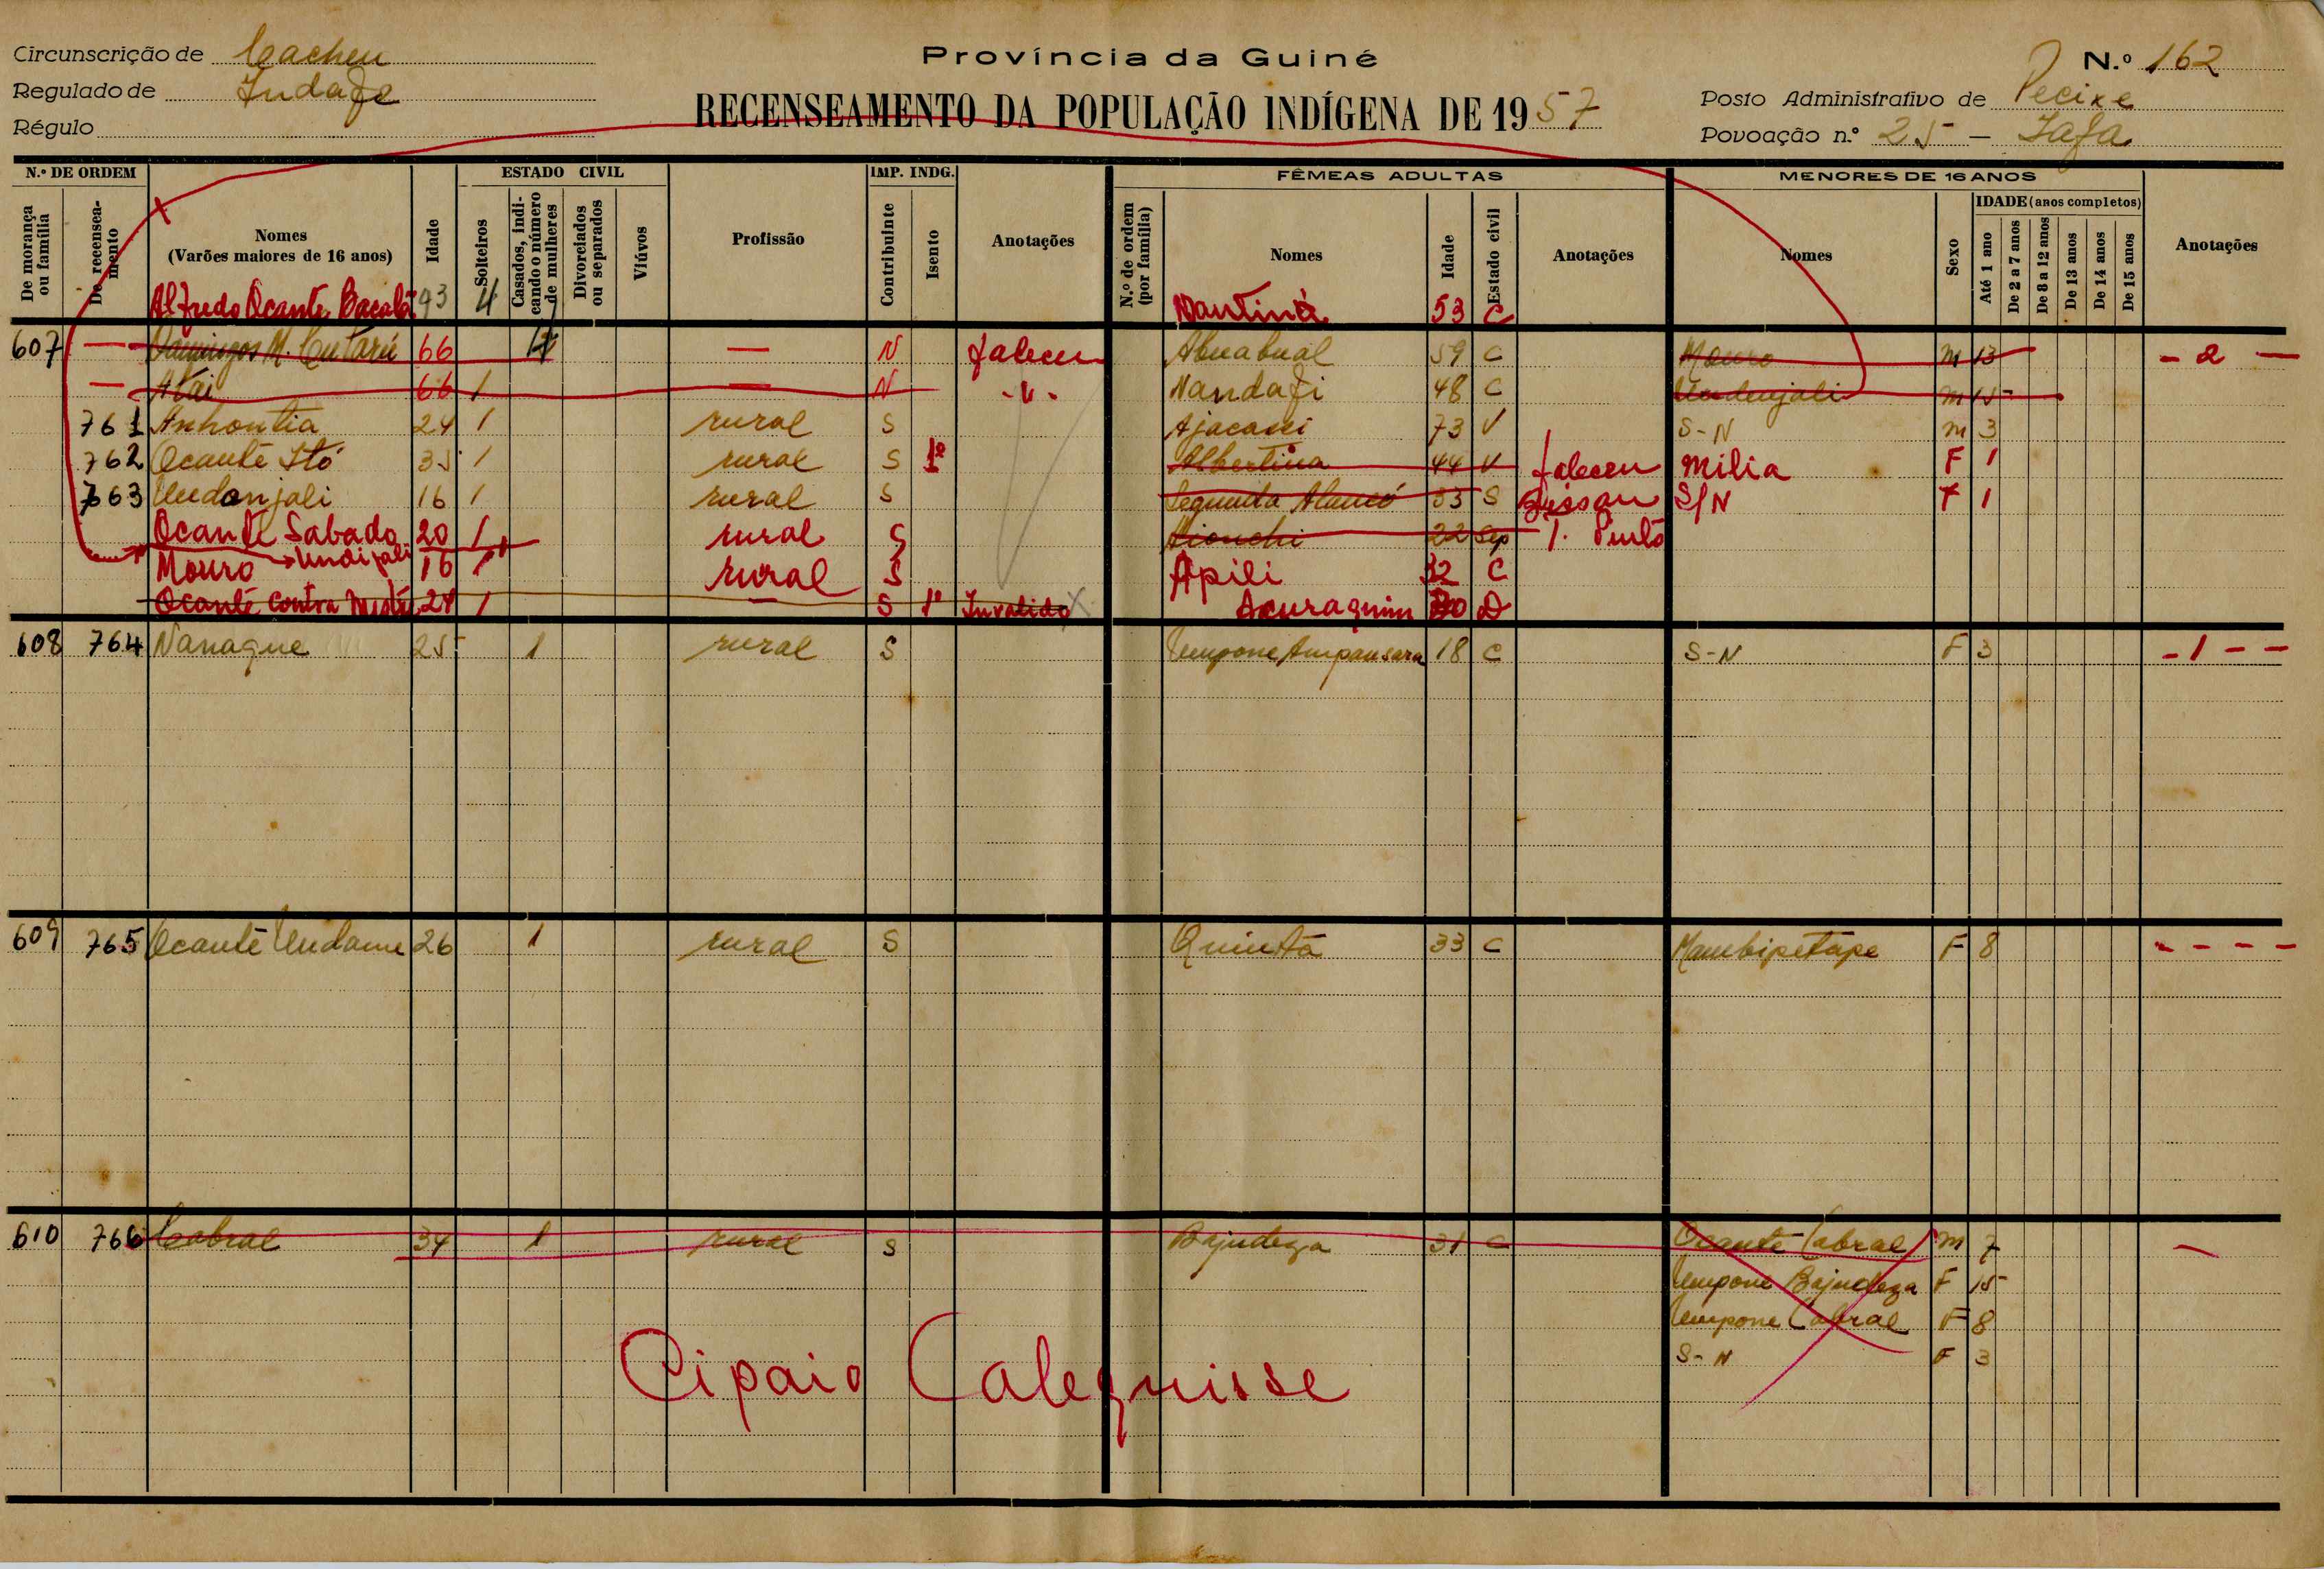 Circunscrição de Cacheu
Regulado de Indafe
Régulo
Província da Guiné
RECENSEAMENTO DA POPULAÇÃO INDÍGENA DE 1957
N.º 162
Posto Administrativo de Pecixe
Povoação n.º 25 -
N.º DE ORDEM
De morança ou família
De recenseamento
Nomes
(Varões maiores de 16 anos)
Idade
ESTADO CIVIL
Solteiros
Casados, indicando o número de mulheres
Divorciados ou separados
Viúvos
Profissão
IMP. INDG.
Contribuinte
Isento
Anotações
FÊMEAS ADULTAS
N.º de ordem (por família)
Nomes
Idade
Estado civil
Anotações
MENORES DE 16 ANOS
Nomes
Sexo
IDADE (anos completos)
Até 1 ano
De 2 a 7 anos
De 8 a 12 anos
De 13 anos
De 14 anos
De 15 anos
Anotações
Alfredo Ocante 4 53 C
607 — Domingos M. 66 — N faleceu Abuabual 59 C Mouro m 13 - 2 —
— Atai 66 1 — N -"- Nandafi 48 C m 15
761 Anhontia 24 1 rural S 73 V S-N m 3
762 Ocante Itó 35 1 rural S 1º Albertina 44 V faleceu Milia F 1
763 Undonjali 16 1 rural S Segunda 33 S Bissau S/N F 1
Ocante Sabado 20 1 rural S 22 Sep T. Pinto
Mouro → 16 1 rural S Apili 32 C
Ocante Contra 1 S 1º Invalido Acuraquim D
608 764 Nanaque 25 1 rural S Umpone 18 C S-N F 3 - 1 - -
609 765 Ocante Undame 26 1 rural S Quinta 33 C Mambipetape F 8 - - - -
610 766 Cabral 34 1 rural S Bajudeza 31 C Ocante Cabral m 7 —
Umpone Bajudeza F 15
Umpone Cabral F 8
S-N F 3
Cipaio Calequisse